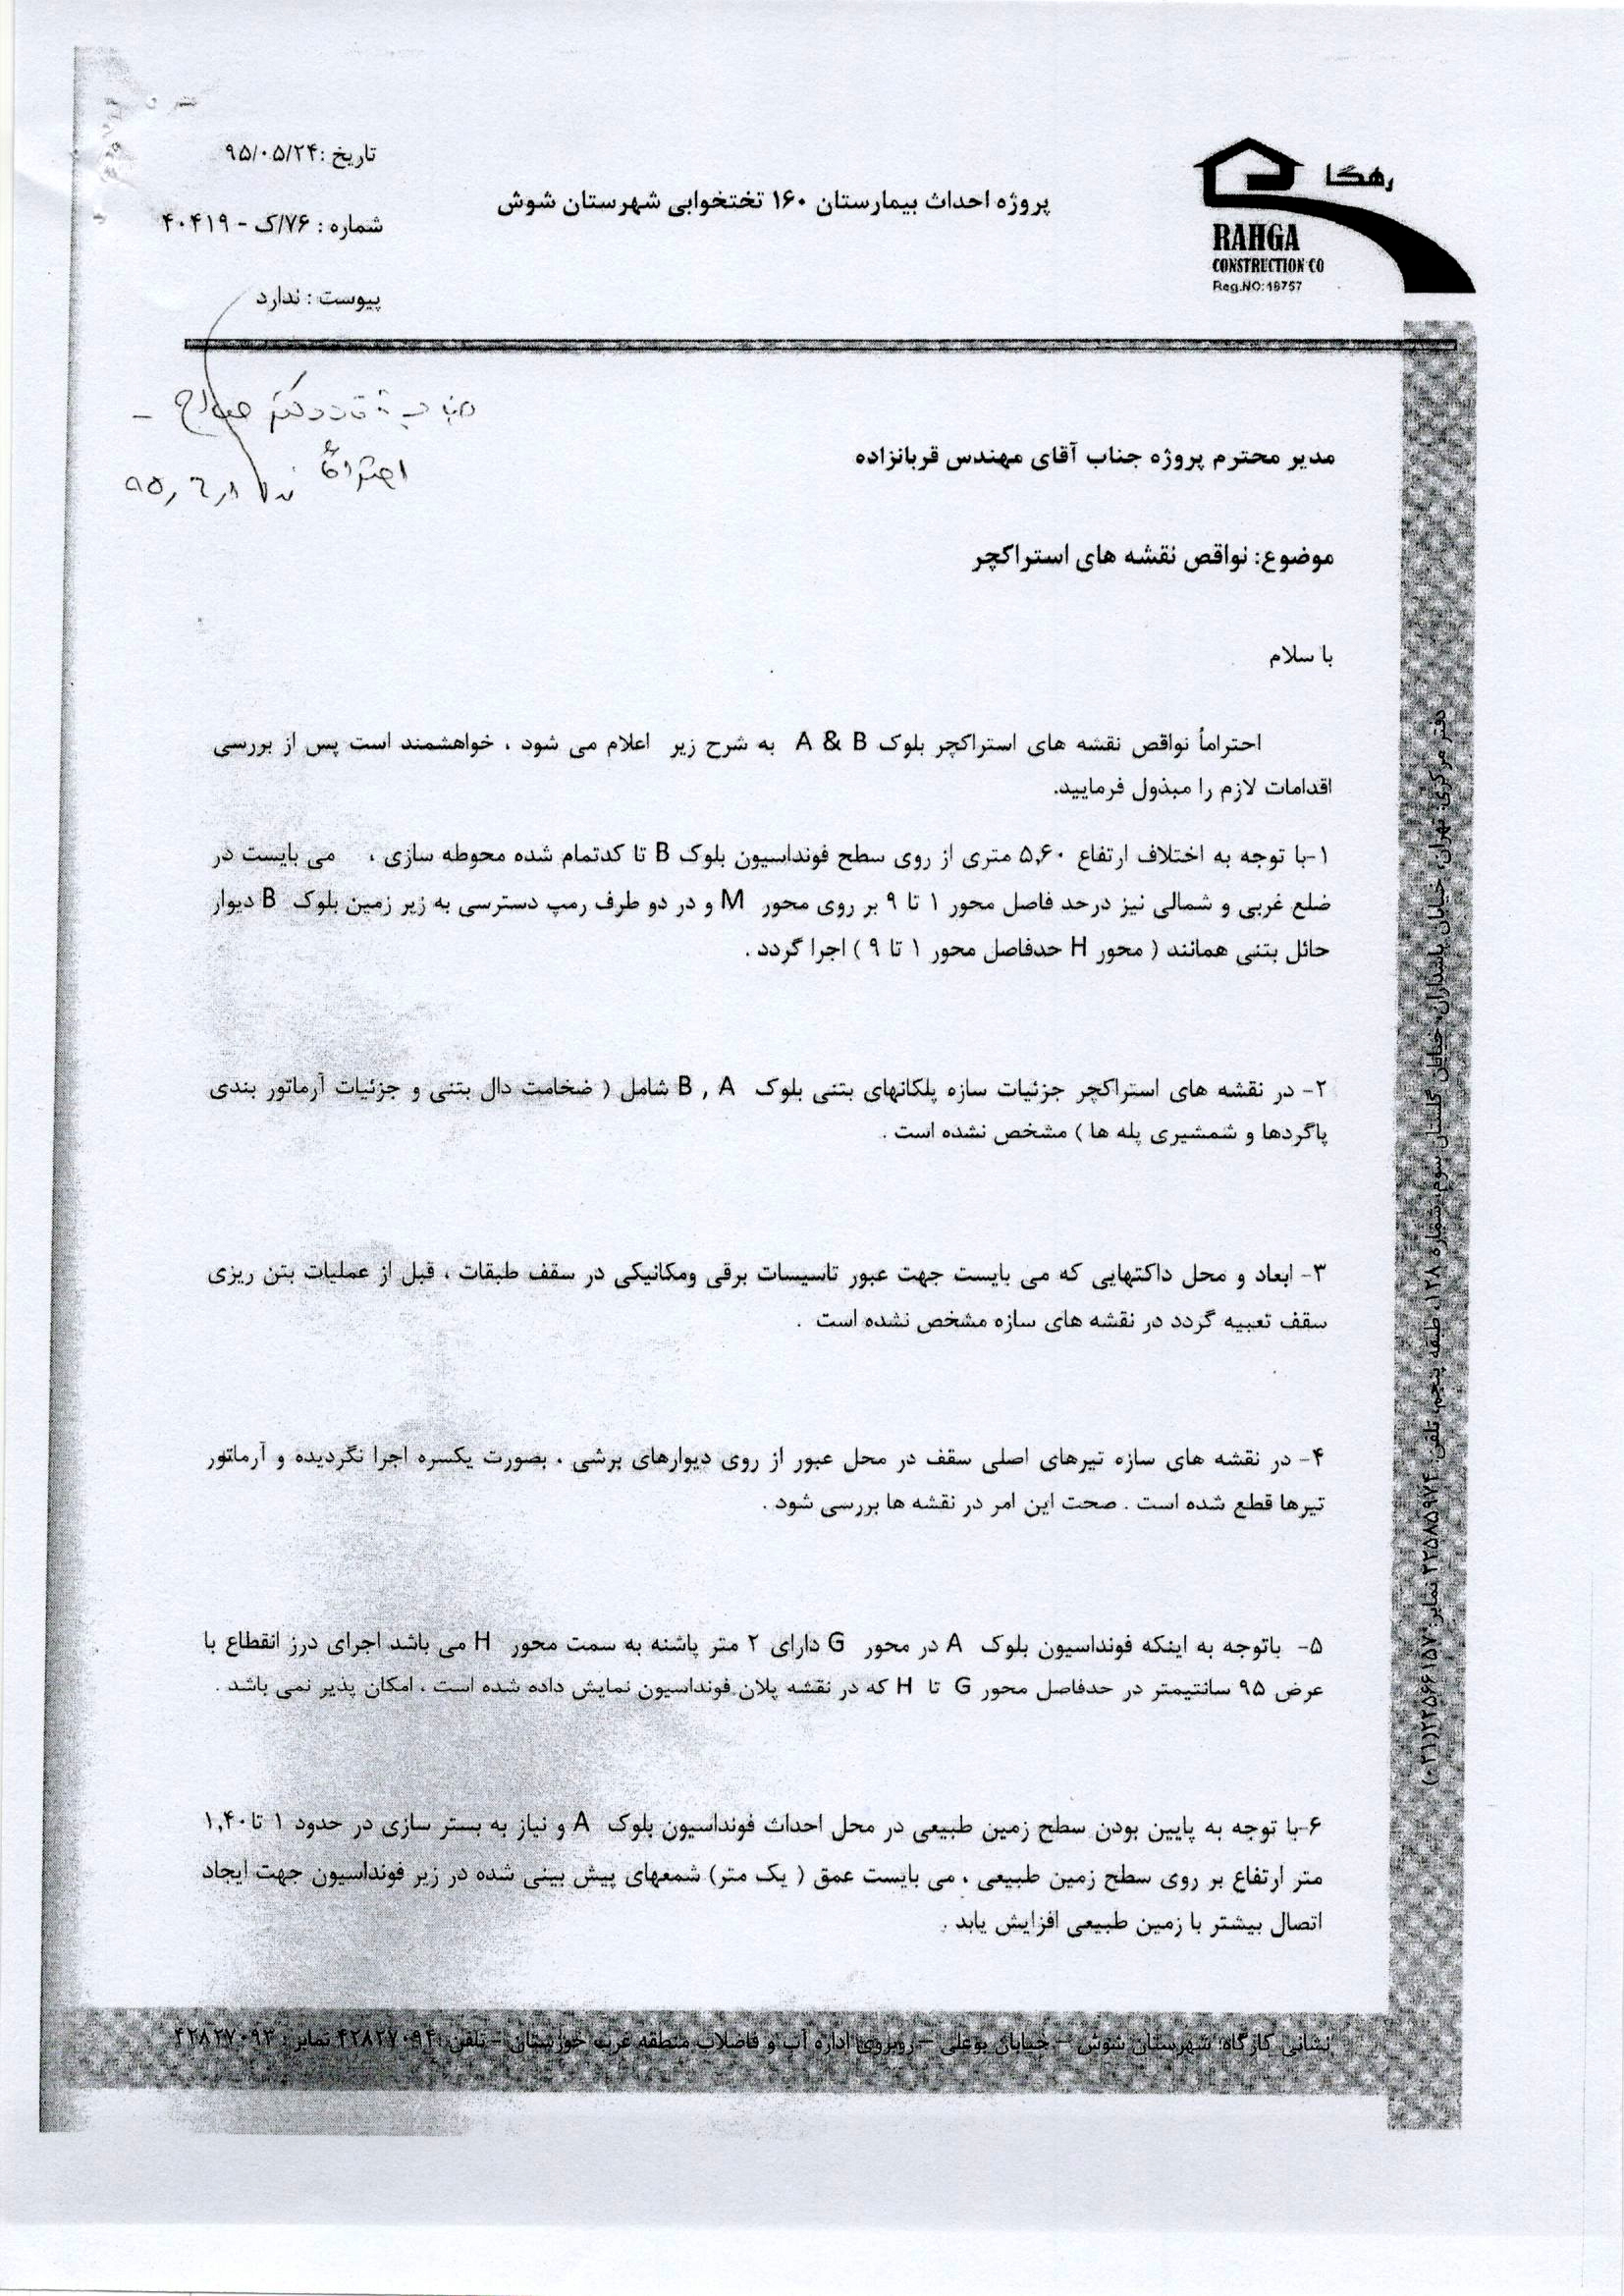 تاریخ :۹۵/۰۵/۲۴
شماره : ۷۶/ک - ۴۰۴۱۹
پیوست : ندارد
پروژه احداث بیمارستان ۱۶۰ تختخوابی شهرستان شوش
رهگا
RAHGA
CONSTRUCTION CO
Reg.NO:18757
احتراماً
مدیر محترم پروژه جناب آقای مهندس قربانزاده
موضوع: نواقص نقشه های استراکچر
با سلام
احتراماً نواقص نقشه های استراکچر بلوک A & B به شرح زیر اعلام می شود ، خواهشمند است پس از بررسی
اقدامات لازم را مبذول فرمایید.
۱-با توجه به اختلاف ارتفاع ۵,۶۰ متری از روی سطح فونداسیون بلوک B تا کدتمام شده محوطه سازی ، می بایست در
ضلع غربی و شمالی نیز درحد فاصل محور ۱ تا ۹ بر روی محور M و در دو طرف رمپ دسترسی به زیر زمین بلوک B دیوار
حائل بتنی همانند ( محور H حدفاصل محور ۱ تا ۹ ) اجرا گردد .
۲- در نقشه های استراکچر جزئیات سازه پلکانهای بتنی بلوک B , A شامل ( ضخامت دال بتنی و جزئیات آرماتور بندی
پاگردها و شمشیری پله ها ) مشخص نشده است .
۳- ابعاد و محل داکتهایی که می بایست جهت عبور تاسیسات برقی ومکانیکی در سقف طبقات ، قبل از عملیات بتن ریزی
سقف تعبیه گردد در نقشه های سازه مشخص نشده است .
۴- در نقشه های سازه تیرهای اصلی سقف در محل عبور از روی دیوارهای برشی ، بصورت یکسره اجرا نگردیده و آرماتور
تیرها قطع شده است . صحت این امر در نقشه ها بررسی شود .
۵- باتوجه به اینکه فونداسیون بلوک A در محور G دارای ۲ متر پاشنه به سمت محور H می باشد اجرای درز انقطاع با
عرض ۹۵ سانتیمتر در حدفاصل محور G تا H که در نقشه پلان فونداسیون نمایش داده شده است ، امکان پذیر نمی باشد .
۶-با توجه به پایین بودن سطح زمین طبیعی در محل احداث فونداسیون بلوک A و نیاز به بستر سازی در حدود ۱ تا ۱,۴۰
متر ارتفاع بر روی سطح زمین طبیعی ، می بایست عمق ( یک متر) شمعهای پیش بینی شده در زیر فونداسیون جهت ایجاد
اتصال بیشتر با زمین طبیعی افزایش یابد .
دفتر مرکزی: تهران، خیابان پاسداران، خیابان گلستان سوم، شماره ۱۲۸، طبقه پنجم، تلفن: ۲۲۵۸۵۹۷۴ نمابر: ۲۲۵۶۶۱۵۷(۰۲۱)
نشانی کارگاه: شهرستان شوش – خیابان بوعلی – روبروی اداره آب و فاضلاب منطقه غرب خوزستان – تلفن: ۴۲۸۲۷۰۹۴ نمابر: ۴۲۸۲۷۰۹۳